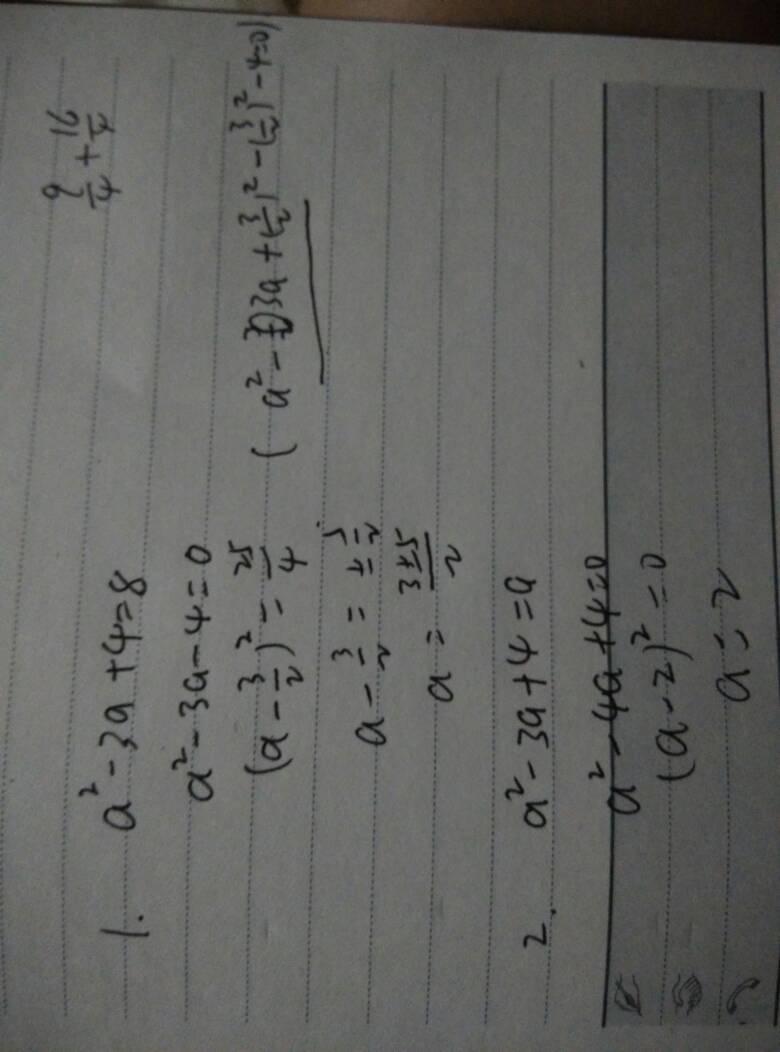 9/4 + 16/4
1. a² - 3a + 4 = 8
a² - 3a - 4 = 0
(a - 3/2)² = 25/4 ( a² - 3a + (3/2)² - (3/2)² - 4 = 0)
a - 3/2 = ± 5/2
a = 3±5/2
2. a² - 3a + 4 = a
a² - 4a + 4 = 0
(a - 2)² = 0
a = 2